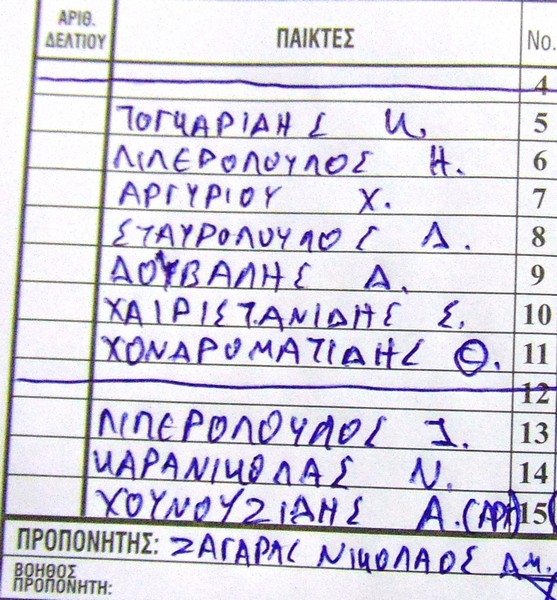 ΑΡΙΘ. ΔΕΛΤΙΟΥ ΠΑΙΚΤΕΣ No.
4
ΤΟΓΚΑΡΙΔΗΣ Κ. 5
ΠΙΠΕΡΟΠΟΥΛΟΣ Η. 6
ΑΡΓΥΡΙΟΥ Χ. 7
ΣΤΑΥΡΟΠΟΥΛΟΣ Δ. 8
ΔΟΥΒΑΛΗΣ Δ. 9
ΧΑΙΡΙΣΤΑΝΙΔΗΣ Σ. 10
ΧΟΝΔΡΟΜΑΤΙΔΗΣ Θ. 11
12
ΠΙΠΕΡΟΠΟΥΛΟΣ Ι. 13
ΚΑΡΑΝΙΚΟΛΑΣ Ν. 14
ΧΟΥΝΟΥΖΙΔΗΣ Α. (ΑΡΧ) 15
ΠΡΟΠΟΝΗΤΗΣ: ΖΑΓΑΡΑΣ ΝΙΚΟΛΑΟΣ
ΒΟΗΘΟΣ
ΠΡΟΠΟΝΗΤΗ: